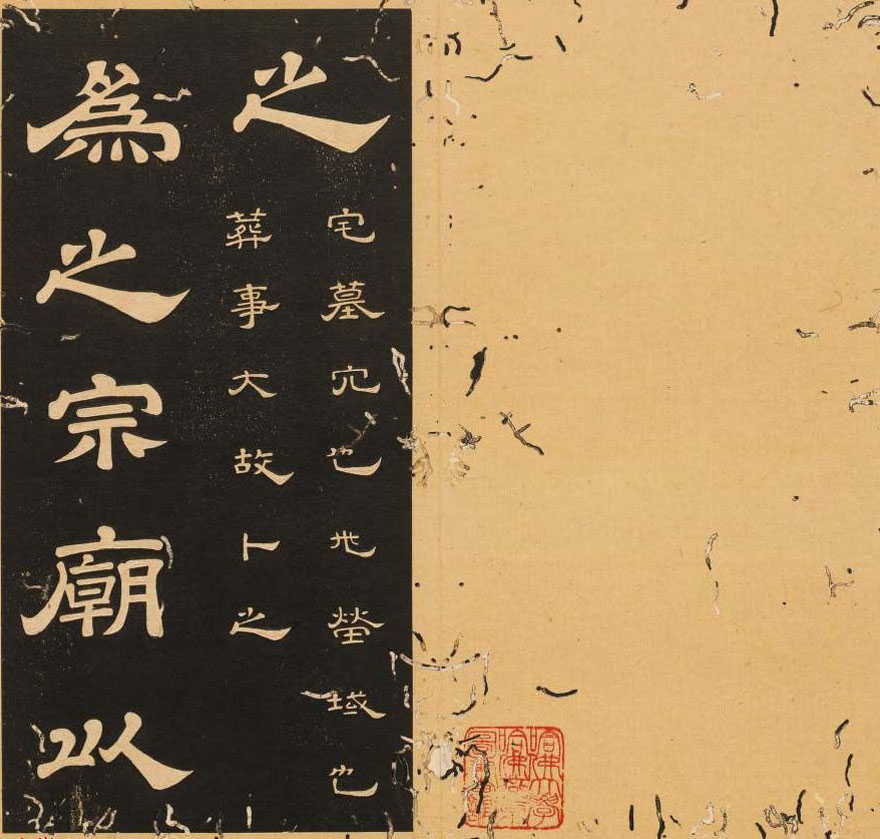 之
宅墓穴也兆塋域也
葬事大故卜之
為之宗廟以